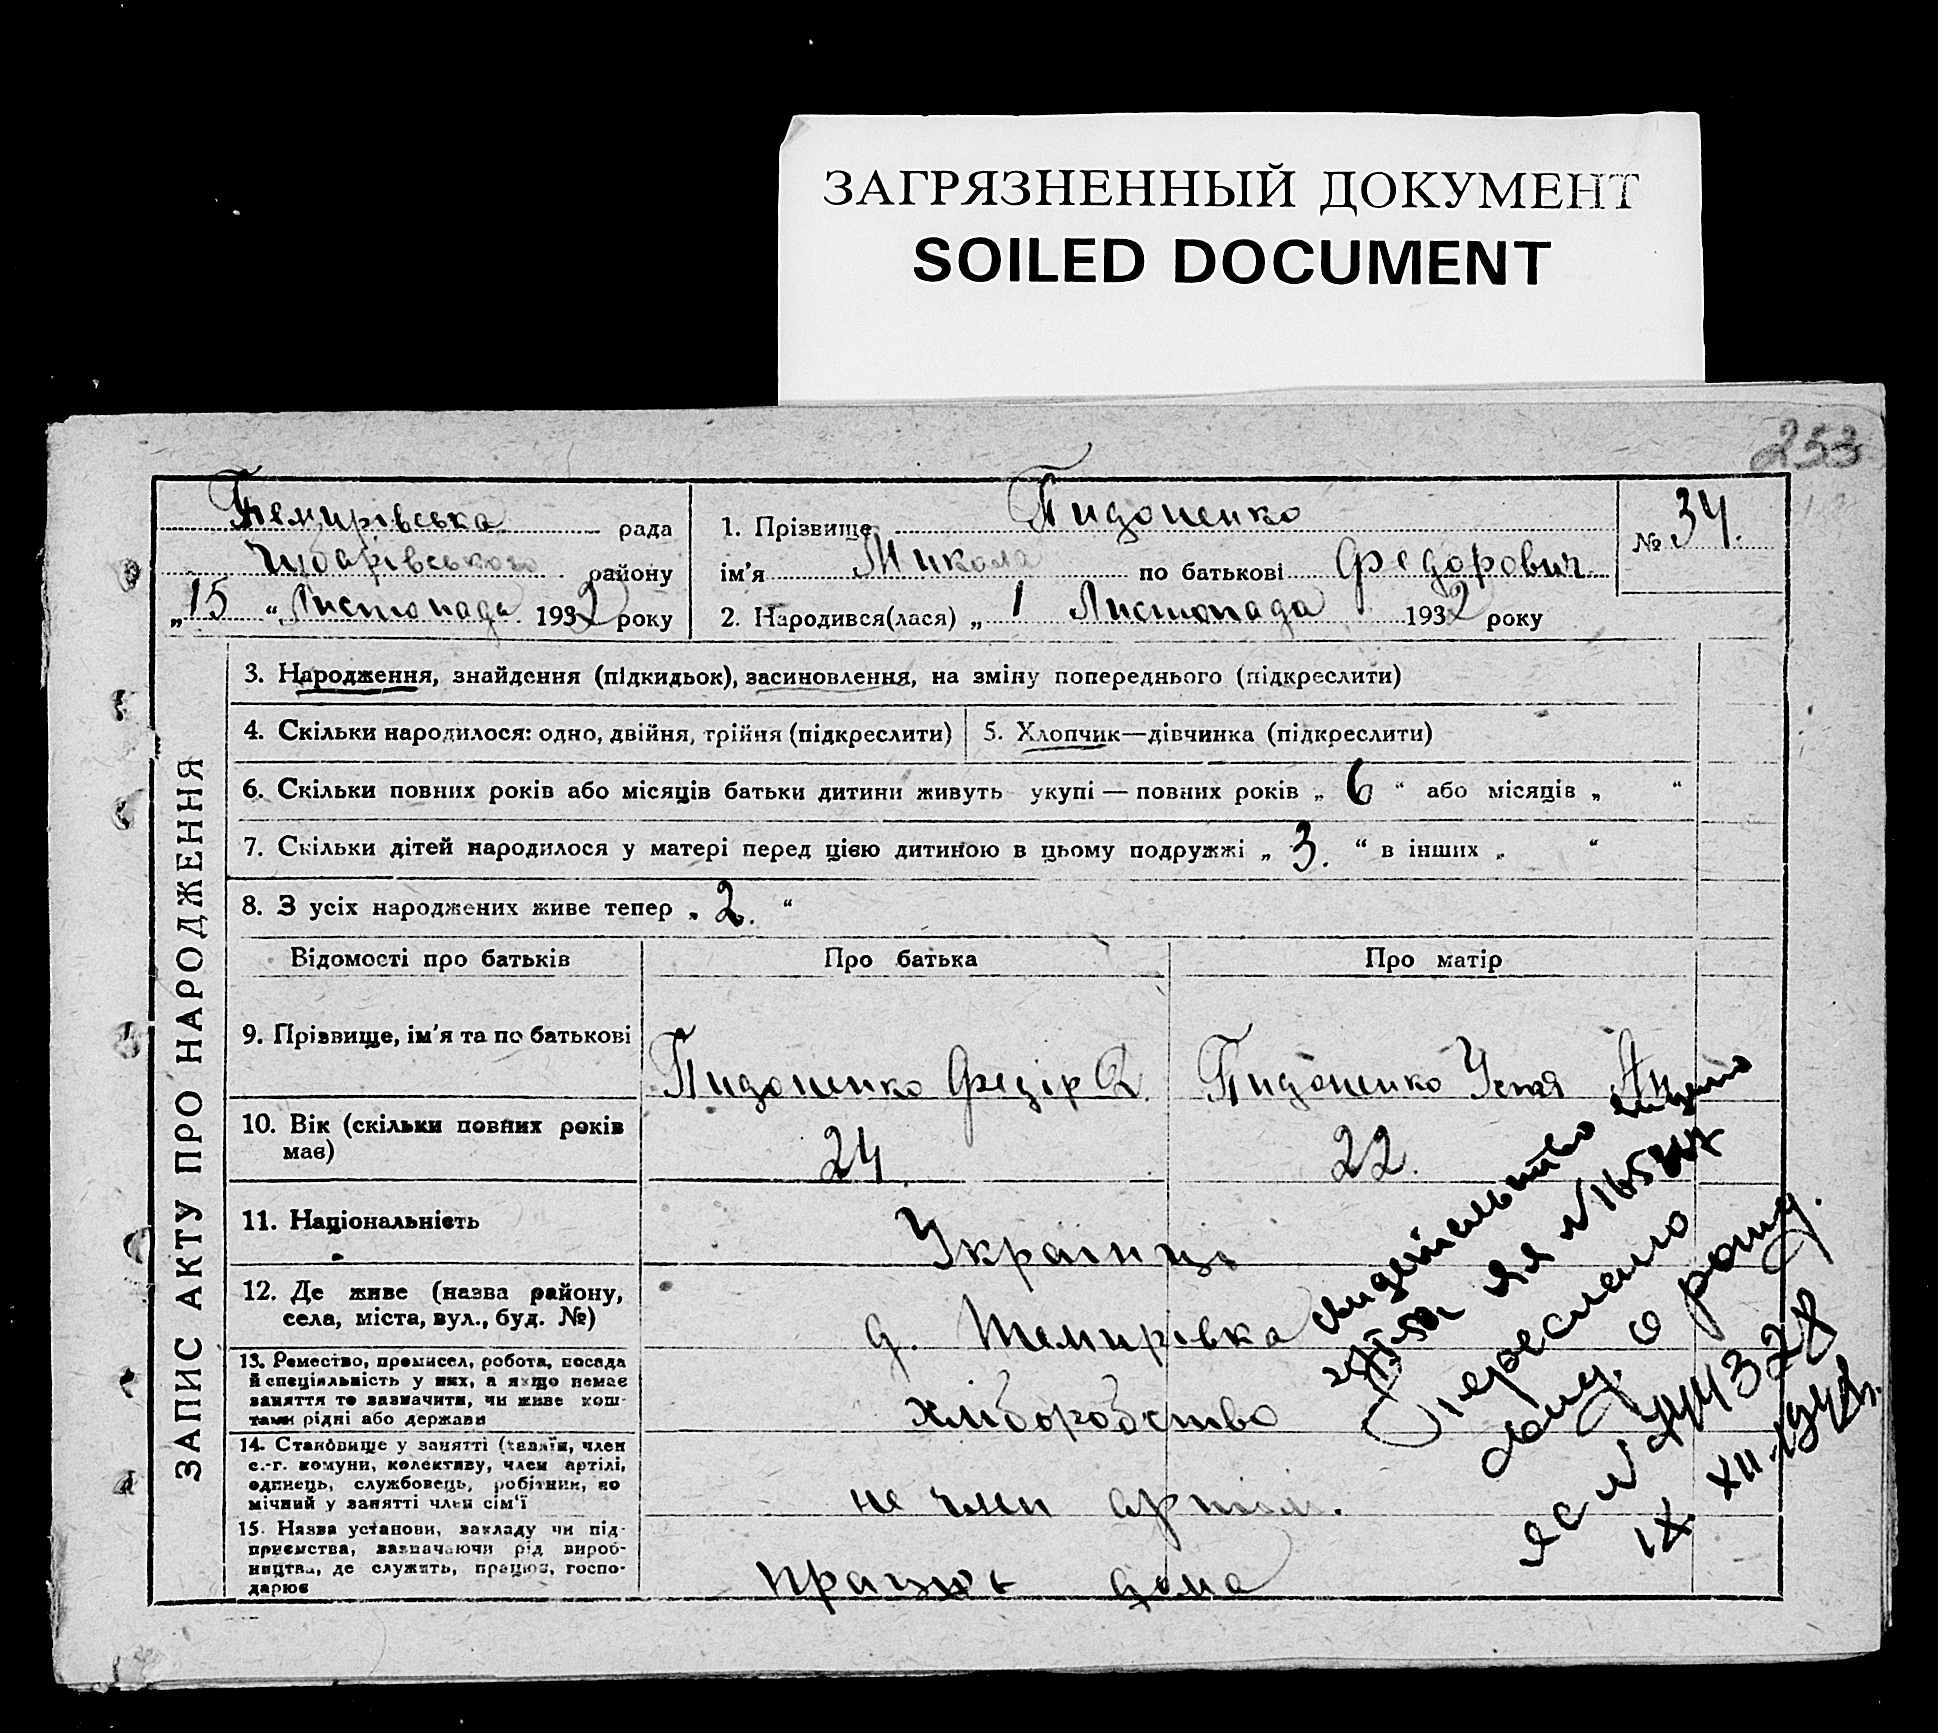 ЗАГРЯЗНЕННЫЙ ДОКУМЕНТ
SOILED DOCUMENT
253
Темирівська рада
Чубарівського району
„15“ Листопада 1932 року
1. Прізвище Пидопенко
ім'я Микола по батькові Федорович
2. Народився(лася) „1 Листопада 1932 року
№ 34.
ЗАПИС АКТУ ПРО НАРОДЖЕННЯ
3. Народження, знайдення (підкидьок), засиновлення, на зміну попереднього (підкреслити)
4. Скільки народилося: одно, двійня, трійня (підкреслити)
5. Хлопчик—дівчинка (підкреслити)
6. Скільки повних років або місяців батьки дитини живуть укупі — повних років „ 6 “ або місяців „ “
7. Скільки дітей народилося у матері перед цією дитиною в цьому подружжі „ 3. “ в інших „ “
8. З усіх народжених живе тепер „ 2. “
Відомості про батьків
Про батька
Про матір
9. Прізвище, ім'я та по батькові
Пидопенко Федір
Пидопенко Устя
10. Вік (скільки повних років
має)
24
22.
11. Національність
Українці
12. Де живе (назва району,
села, міста, вул., буд. №)
д. Темирівка
13. Ремество, промисел, робота, посада
й спеціяльність у них, а якщо немає
заняття то зазначити, чи живе кош-
тами рідні або держави
хліборобство
14. Становище у занятті (хазяїн, член
с.-г. комуни, колективу, член артілі,
одинець, службовець, робітник, по
мічний у занятті член сім'ї
не член артіл.
15. Назва установи, закладу чи під-
приємства, зазначаючи рід вироб-
ництва, де служить, працює, госпо-
дарює
працює дома
свидетельство
ЯЛ №
переслано
о рожд.
ЯС №